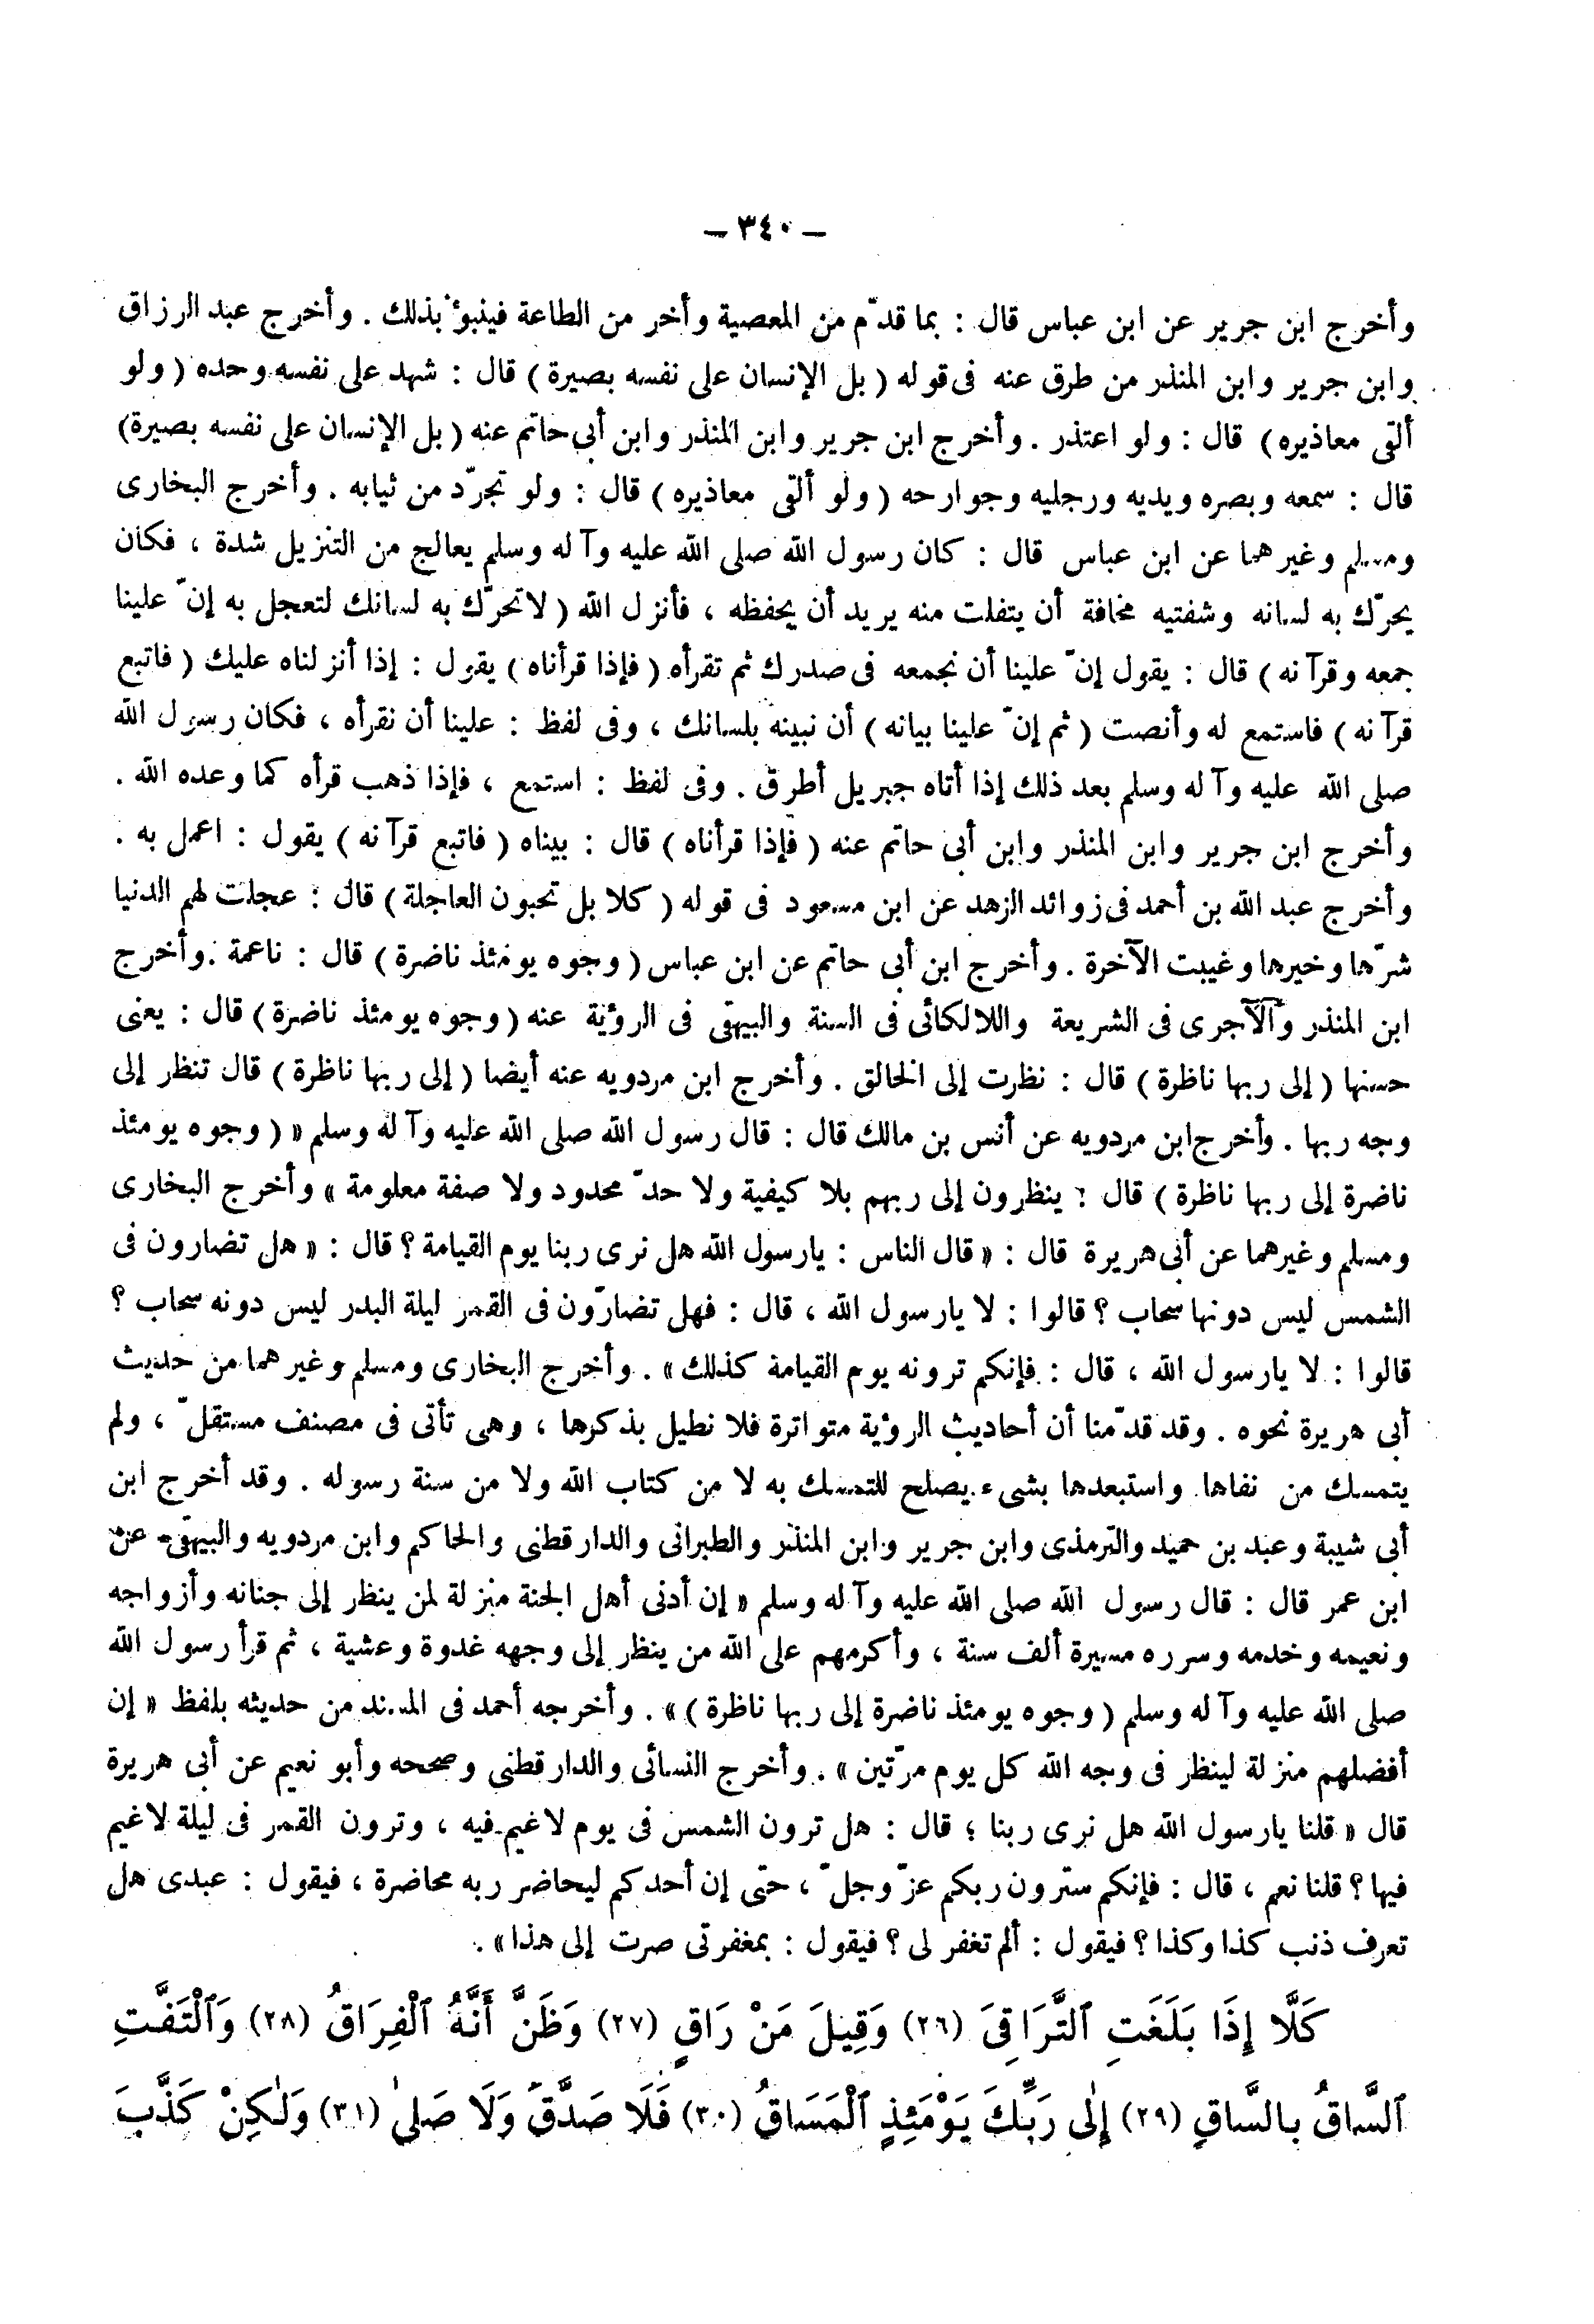 – ٣٤٠ –
وأخرج ابن جرير عن ابن عباس قال : بما قدّم من المعصية وأخر من الطاعة فينبؤ بذلك . وأخرج عبد الرزاق
وابن جرير وابن المنذر من طرق عنه فى قوله ( بل الإنسان على نفسه بصيرة ) قال : شهد على نفسه وحده ( ولو
ألقى معاذيره ) قال : ولو اعتذر . وأخرج ابن جرير وابن المنذر وابن أبى حاتم عنه ( بل الإنسان على نفسه بصيرة )
قال : سمعه وبصره ويديه ورجليه وجوارحه ( ولو ألقى معاذيره ) قال : ولو تجرّد من ثيابه . وأخرج البخارى
ومسلم وغيرهما عن ابن عباس قال : كان رسول الله صلى الله عليه وآله وسلم يعالج من التنزيل شدة ، فكان
يحرّك به لسانه وشفتيه مخافة أن يتفلت منه يريد أن يحفظه ، فأنزل الله ( لاتحرّك به لسانك لتعجل به إنّ علينا
جمعه وقرآنه ) قال : يقول إنّ علينا أن نجمعه فى صدرك ثم تقرأه ( فإذا قرأناه ) يقول : إذا أنزلناه عليك ( فاتبع
قرآنه ) فاستمع له وأنصت ( ثم إنّ علينا بيانه ) أن نبينه بلسانك ، وفى لفظ : علينا أن نقرأه ، فكان رسول الله
صلى الله عليه وآله وسلم بعد ذلك إذا أتاه جبريل أطرق . وفى لفظ : استمع ، فإذا ذهب قرأه كما وعده الله .
وأخرج ابن جرير وابن المنذر وابن أبى حاتم عنه ( فإذا قرأناه ) قال : بيناه ( فاتبع قرآنه ) يقول : اعمل به .
وأخرج عبد الله بن أحمد فى زوائد الزهد عن ابن مسعود فى قوله ( كلا بل تحبون العاجلة ) قال : عجلت لهم الدنيا
شرّها وخيرها وغيبت الآخرة . وأخرج ابن أبى حاتم عن ابن عباس ( وجوه يومئذ ناضرة ) قال : ناعمة . وأخرج
ابن المنذر والآجرى فى الشريعة واللالكائى فى السنة والبيهقى فى الرؤية عنه ( وجوه يومئذ ناضرة ) قال : يعنى
حسنها ( إلى ربها ناظرة ) قال : نظرت إلى الخالق . وأخرج ابن مردويه عنه أيضا ( إلى ربها ناظرة ) قال تنظر إلى
وجه ربها . وأخرج ابن مردويه عن أنس بن مالك قال : قال رسول الله صلى الله عليه وآله وسلم « ( وجوه يومئذ
ناضرة إلى ربها ناظرة ) قال : ينظرون إلى ربهم بلا كيفية ولا حدّ محدود ولا صفة معلومة » وأخرج البخارى
ومسلم وغيرهما عن أبى هريرة قال : « قال الناس : يارسول الله هل نرى ربنا يوم القيامة ؟ قال : « هل تضارون فى
الشمس ليس دونها سحاب ؟ قالوا : لا يارسول الله ، قال : فهل تضارّون فى القمر ليلة البدر ليس دونه سحاب ؟
قالوا : لا يارسول الله ، قال : فإنكم ترونه يوم القيامة كذلك » . وأخرج البخارى ومسلم وغيرهما من حديث
أبى هريرة نحوه . وقد قدّمنا أن أحاديث الرؤية متواترة فلا نطيل بذكرها ، وهى تأتى فى مصنف مستقلّ ، ولم
يتمسك من نفاها واستبعدها بشىء يصلح للتمسك به لا من كتاب الله ولا من سنة رسوله . وقد أخرج ابن
أبى شيبة وعبد بن حميد والترمذى وابن جرير وابن المنذر والطبرانى والدارقطنى والحاكم وابن مردويه والبيهقى عن
ابن عمر قال : قال رسول الله صلى الله عليه وآله وسلم « إن أدنى أهل الجنة منزلة لمن ينظر إلى جنانه وأزواجه
ونعيمه وخدمه وسرره مسيرة ألف سنة ، وأكرمهم على الله من ينظر إلى وجهه غدوة وعشية ، ثم قرأ رسول الله
صلى الله عليه وآله وسلم ( وجوه يومئذ ناضرة إلى ربها ناظرة ) » . وأخرجه أحمد فى المسند من حديثه بلفظ « إن
أفضلهم منزلة لينظر فى وجه الله كل يوم مرّتين » . وأخرج النسائى والدارقطنى وصححه وأبو نعيم عن أبى هريرة
قال « قلنا يارسول الله هل نرى ربنا ؛ قال : هل ترون الشمس فى يوم لاغيم فيه ، وترون القمر فى ليلة لاغيم
فيها ؟ قلنا نعم ، قال : فإنكم سترون ربكم عزّ وجلّ ، حتى إن أحدكم ليحاضر ربه محاضرة ، فيقول : عبدى هل
تعرف ذنب كذا وكذا ؟ فيقول : ألم تغفر لى ؟ فيقول : بمغفرتى صرت إلى هذا » .
كَلَّا إِذَا بَلَغَتِ ٱلتَّرَاقِىَ (٢٦) وَقِيلَ مَنْ رَاقٍ (٢٧) وَظَنَّ أَنَّهُ ٱلْفِرَاقُ (٢٨) وَٱلْتَفَّتِ
ٱلسَّاقُ بِالسَّاقِ (٢٩) إِلَى رَبِّكَ يَوْمَئِذٍ ٱلْمَسَاقُ (٣٠) فَلَا صَدَّقَ وَلَا صَلىٰ (٣١) وَلٰكِنْ كَذَّبَ